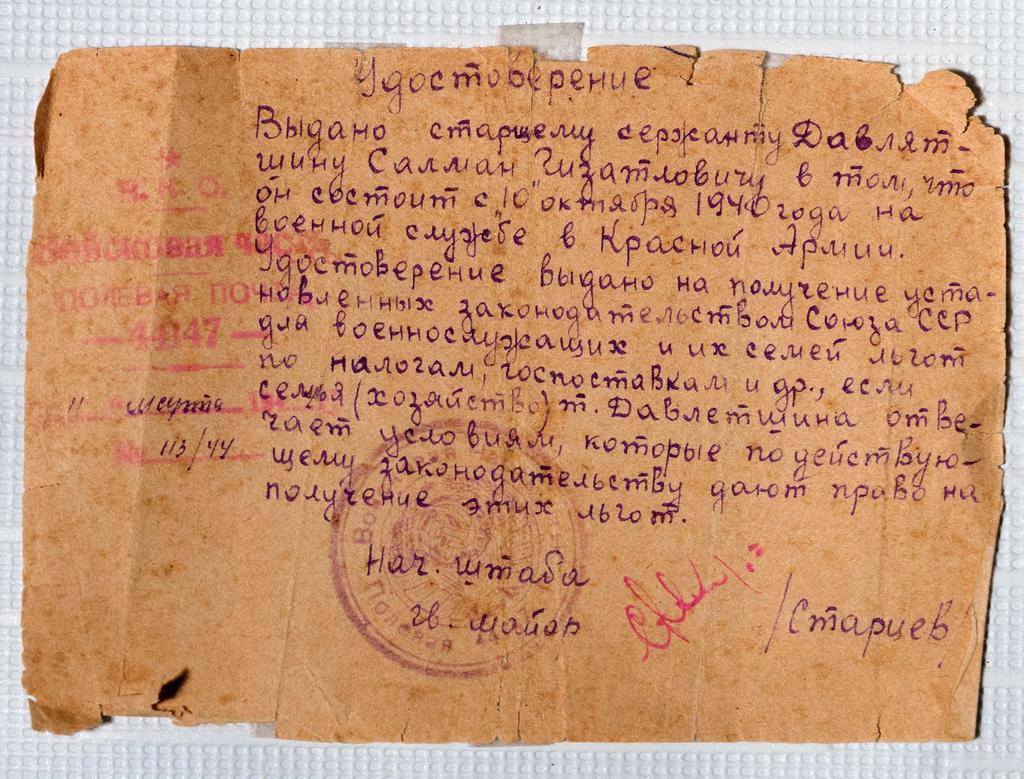 Удостоверение
Выдано старшему сержанту Давлят-
шину Салман Гизатловичу в том, что
он состоит с "10" октября 1940 года на
военной службе в Красной Армии.
Удостоверение выдано на получение уста-
новленных законодательством Союза ССР
для военнослужащих и их семей льгот
по налогам, госпоставкам и др., если
семья (хозяйство) т. Давлетшина отве-
чает условиям, которые по действую-
щему законодательству дают право на
получение этих льгот.
Н. К. О.
Войсковая часть
ПОЛЕВАЯ ПОЧТА
— 44147 —
11 марта
№ 113/44
Нач. штаба
гв. майор /Старцев/
Полевая